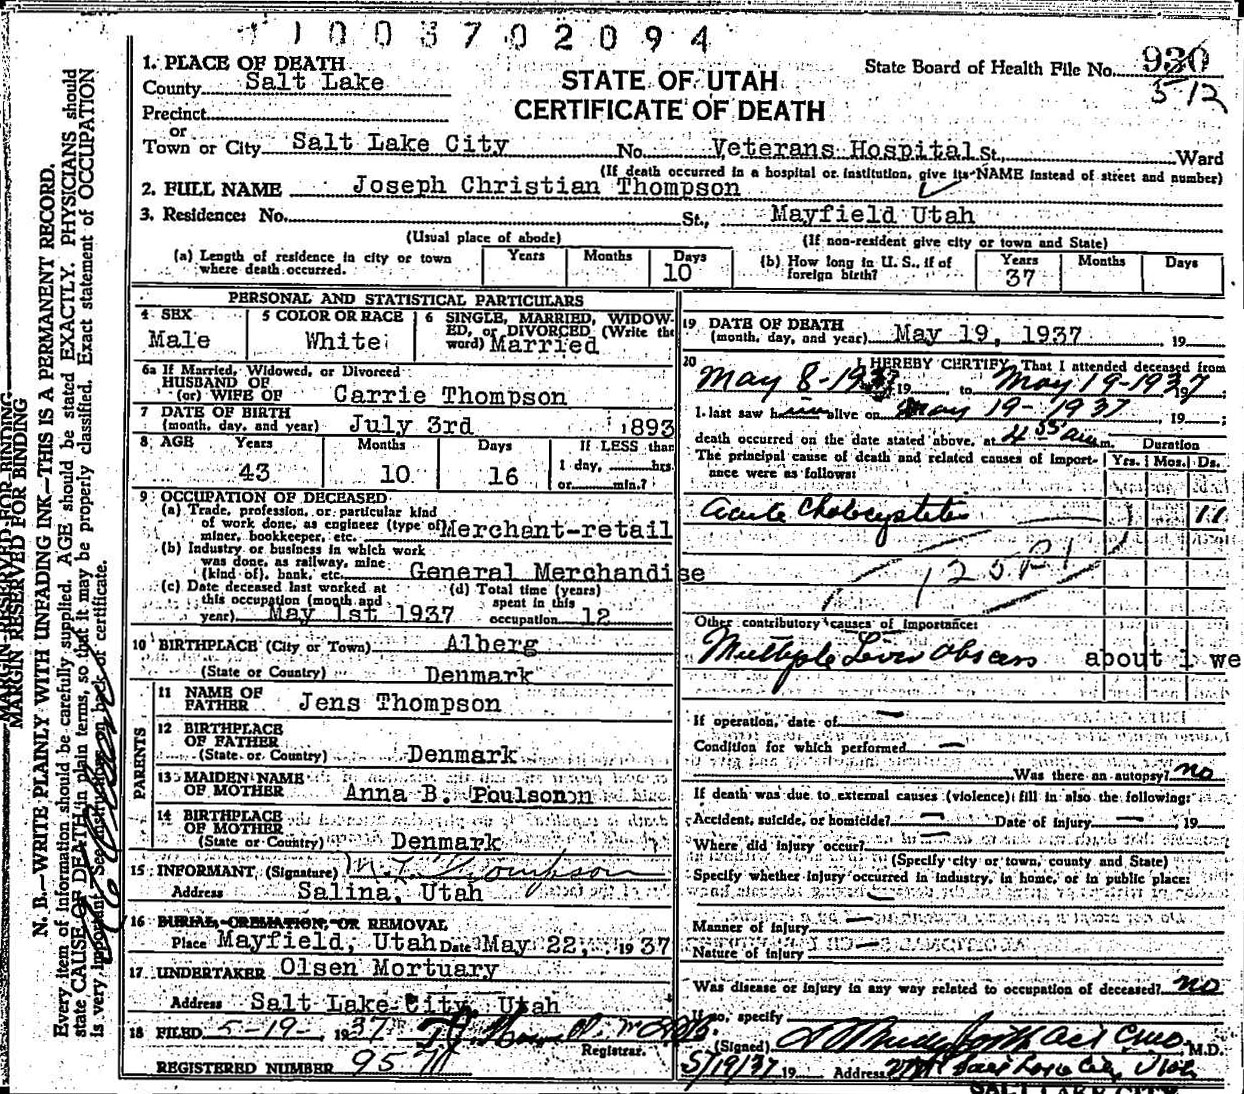 1003702094
1. PLACE OF DEATH
County Salt Lake
STATE OF UTAH
CERTIFICATE OF DEATH
State Board of Health File No. 930
5 12
Precinct
or
Town or City Salt Lake City No. Veterans Hospital St., Ward
(If death occurred in a hospital or institution, give its NAME instead of street and number)
2. FULL NAME Joseph Christian Thompson
3. Residence: No. St., Mayfield Utah
(Usual place of abode) (If non-resident give city or town and State)
(a) Length of residence in city or town where death occurred. Years Months Days 10
(b) How long in U. S., if of foreign birth? Years 37 Months Days
PERSONAL AND STATISTICAL PARTICULARS
4 SEX Male
5 COLOR OR RACE White
6 SINGLE, MARRIED, WIDOWED, or DIVORCED (Write the word) Married
6a If Married, Widowed, or Divorced
HUSBAND OF
(or) WIFE OF Carrie Thompson
7 DATE OF BIRTH
(month, day, and year) July 3rd 1893
8 AGE Years Months Days If LESS than
43 10 16 1 day, hrs.
or min.?
9 OCCUPATION OF DECEASED
(a) Trade, profession, or particular kind
of work done, as engineer (type of)
miner, bookkeeper, etc. Merchant-retail
(b) Industry or business in which work
was done, as railway, mine
(kind of), bank, etc. General Merchandise
(c) Date deceased last worked at
this occupation (month and
year) May 1st 1937
(d) Total time (years)
spent in this
occupation 12
10 BIRTHPLACE (City or Town) Alberg
(State or Country) Denmark
PARENTS
11 NAME OF
FATHER Jens Thompson
12 BIRTHPLACE
OF FATHER
(State or Country) Denmark
13 MAIDEN NAME
OF MOTHER Anna B. Poulsonon
14 BIRTHPLACE
OF MOTHER
(State or Country) Denmark
15 INFORMANT, (Signature) Thompson
Address Salina, Utah
16 BURIAL, CREMATION, OR REMOVAL
Place Mayfield, Utah Date May 22, 1937
17 UNDERTAKER Olsen Mortuary
Address Salt Lake City, Utah
18 FILED 5-19- 1937
Registrar.
REGISTERED NUMBER 957
19 DATE OF DEATH
(month, day, and year) May 19, 1937 19
20 I HEREBY CERTIFY, That I attended deceased from
May 8-1937 19 to May 19-1937
I last saw him alive on May 19-1937, 19 ;
death occurred on the date stated above, at 4 55 am m. Duration
The principal cause of death and related causes of importance were as follows: Yrs. Mos. Ds.
Acute Cholecystitis 11
Other contributory causes of importance:
Multiple Liver Abscess about 1 we
If operation, date of
Condition for which performed
Was there an autopsy? no
If death was due to external causes (violence) fill in also the following:
Accident, suicide, or homicide? Date of injury 19
Where did injury occur?
(Specify city or town, county and State)
Specify whether injury occurred in industry, in home, or in public place:
Manner of injury
Nature of injury
Was disease or injury in any way related to occupation of deceased? no
If so, specify
(Signed) M.D.
5/19/37 19 Address Salt Lake City, Utah
SALT LAKE CITY
MARGIN RESERVED FOR BINDING
N. B.—WRITE PLAINLY WITH UNFADING INK—THIS IS A PERMANENT RECORD.
Every item of information should be carefully supplied. AGE should be stated EXACTLY. PHYSICIANS should
state CAUSE OF DEATH in plain terms, so that it may be properly classified. Exact statement of OCCUPATION
is very important. See instructions on back of certificate.